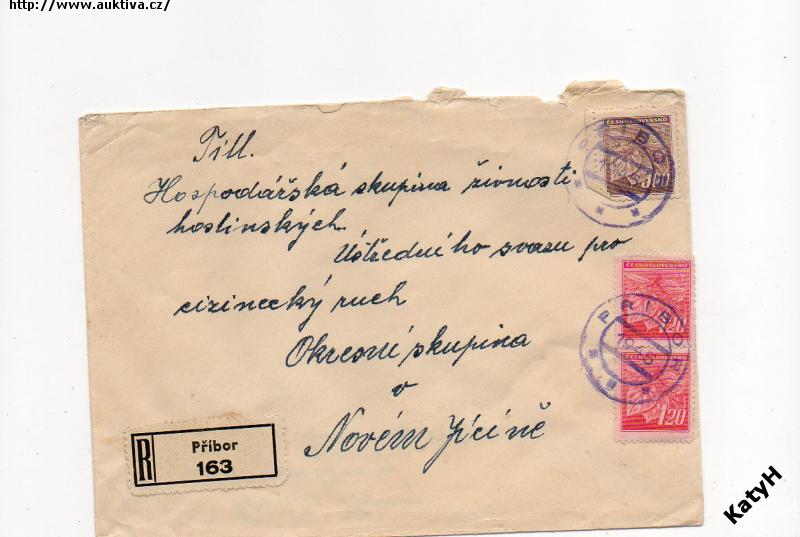 http://www.auktiva.cz/
Titl.
Hospodářská skupina živnosti
hostinských
Ústředního svazu pro
cizinecký ruch
Okresní skupina
v
Novém Jičíně
R
Příbor
163
ČESKOSLOVENSKO
PŘÍBOR
ČESKOSLOVENSKO
1.20
PŘÍBOR
ČESKOSLOVENSKO
1.20
KatyH